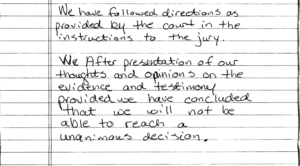 We have followed directions as
provided by the court in the
instructions to the jury.
We After presentation of our
thoughts and opinions on the
evidence and testimony
provided we have concluded
that we will not be
able to reach a
unanimous decision.